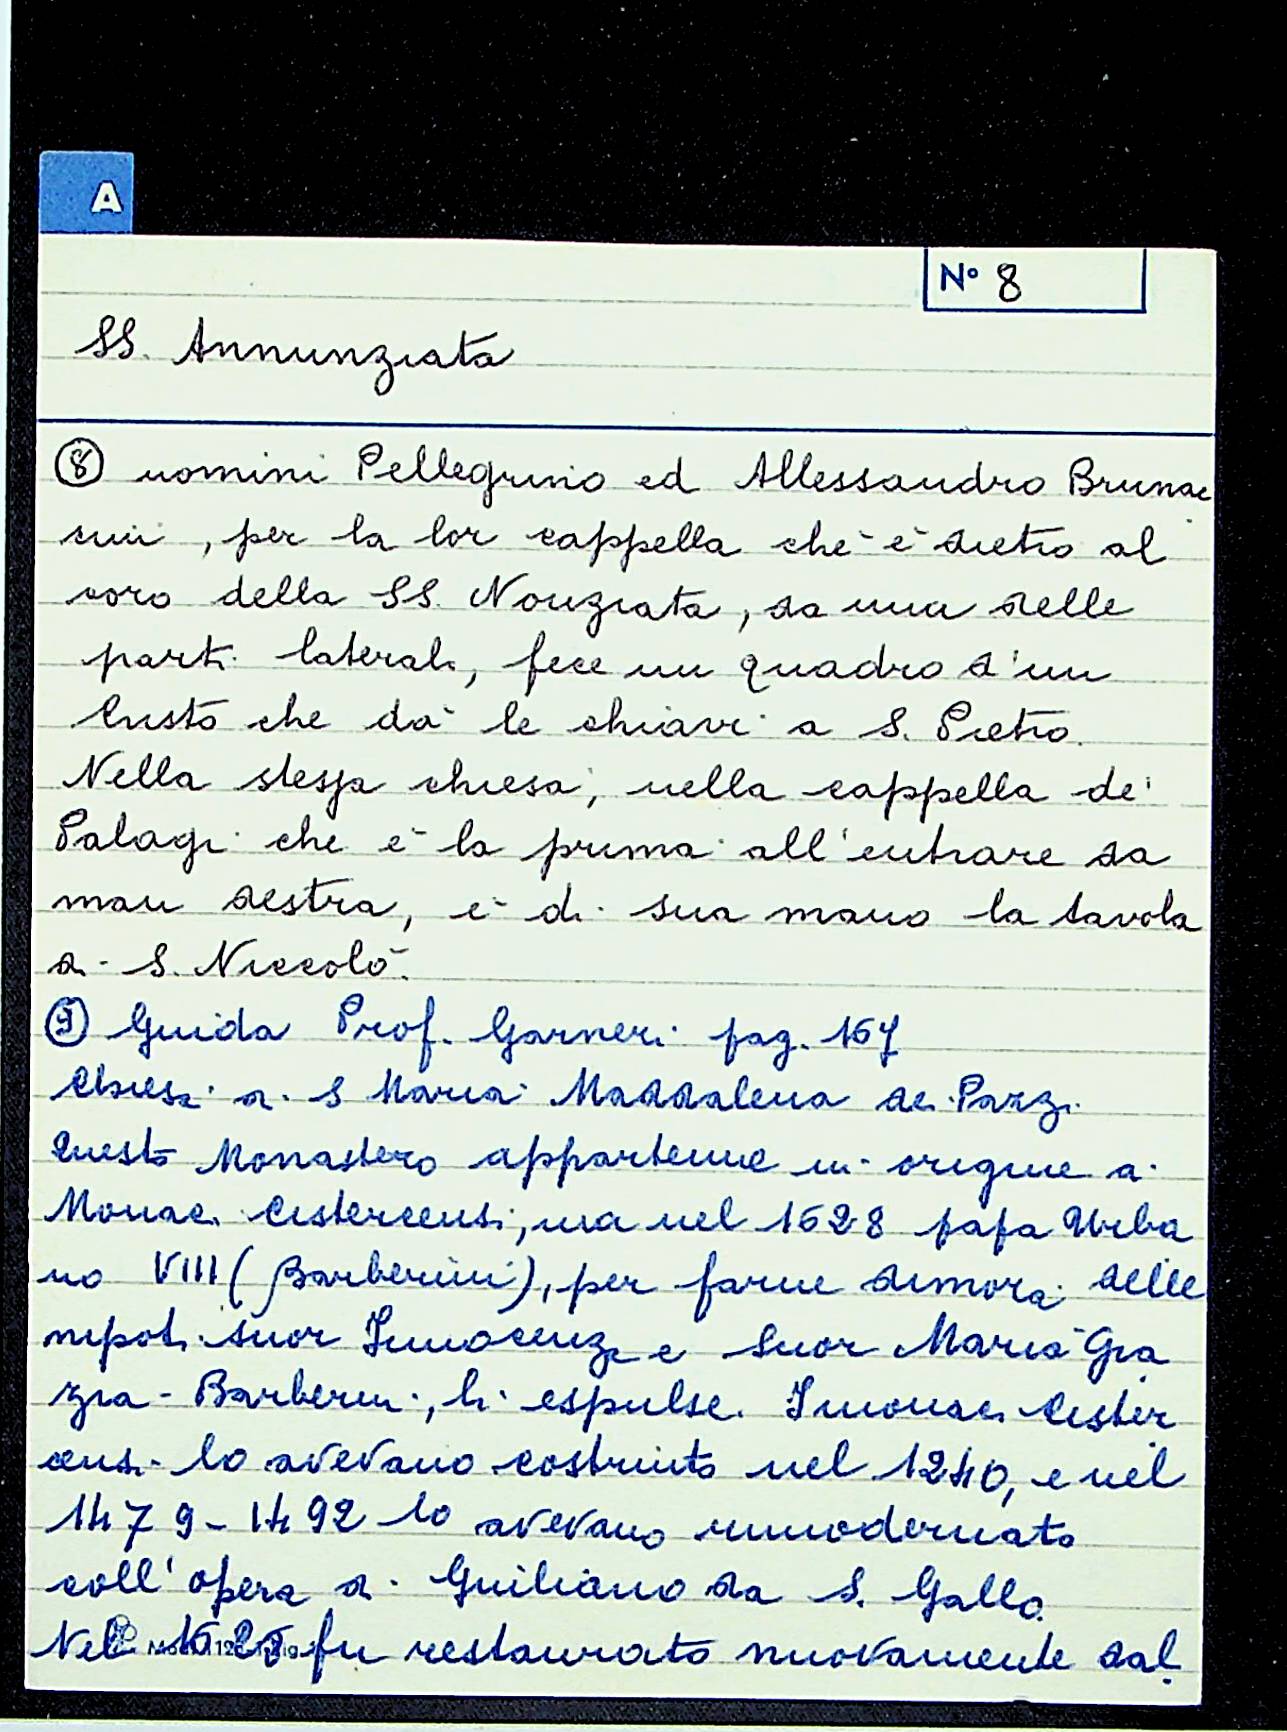 A
N° 8
SS. Annunziata
⑧ uomini Pellegrino ed Allessandro Brunac
cini, per la lor cappella che è dietro al
coro della SS. Nonziata, da una delle
parti laterali, fece un quadro d'un
Cristo che dà le chiavi a S. Pietro.
Nella stessa chiesa, nella cappella de'
Palagi che è la prima all'entrare da
man destra, è di sua mano la tavola
di S. Niccolò.
⑨ Guida Prof. Garneri pag. 167
Chiesa di S Maria Maddalena dei Pazzi
Questo Monastero appartenne in origine ai
Monaci Cistercensi, ma nel 1628 papa Urba
no VIII (Barberini), per farne dimora delle
nipoti suor Innocenza e Suor Maria Gra
zia Barberini, li espulse. I monaci Cister
censi lo avevano costruito nel 1240, e nel
1479-1492 lo avevano rimodernato
coll'opera di Guiliano da S. Gallo.
Nel fu restaurato nuovamente dal